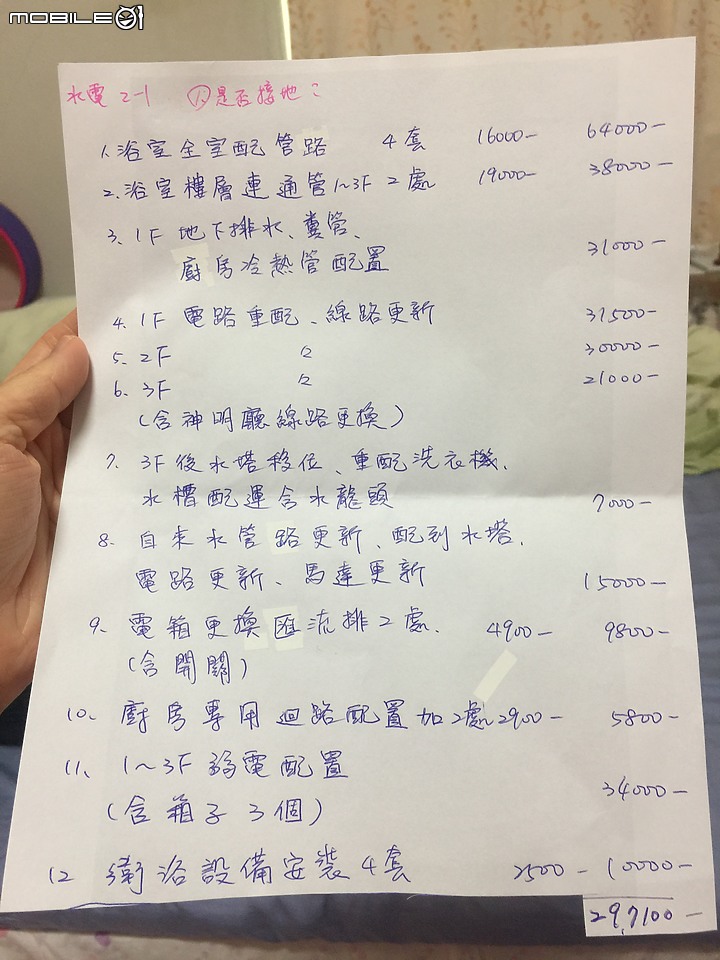 MOBILE01
水電 2-1 ①是否接地?
1. 浴室全室配管路 4套 16000- 64000-
2. 浴室樓層連通管1~3F 2處 19000- 38000-
3. 1F 地下排水、糞管、
廚房冷熱管配置 31000-
4. 1F 電路重配、線路更新 31500-
5. 2F 〃 30000-
6. 3F 〃 21000-
(含神明廳線路更換)
7. 3F後水塔移位、重配洗衣機、
水槽配運含水龍頭 7000-
8. 自來水管路更新、配到水塔、
電路更新、馬達更新 15000-
9. 電箱更換匯流排2處、 4900- 9800-
(含開關)
10、廚房專用迴路配置加2處 2900- 5800-
11、1~3F弱電配置
(含箱子3個) 34000-
12 衛浴設備安裝4套 2500- 10000-
29,7100-